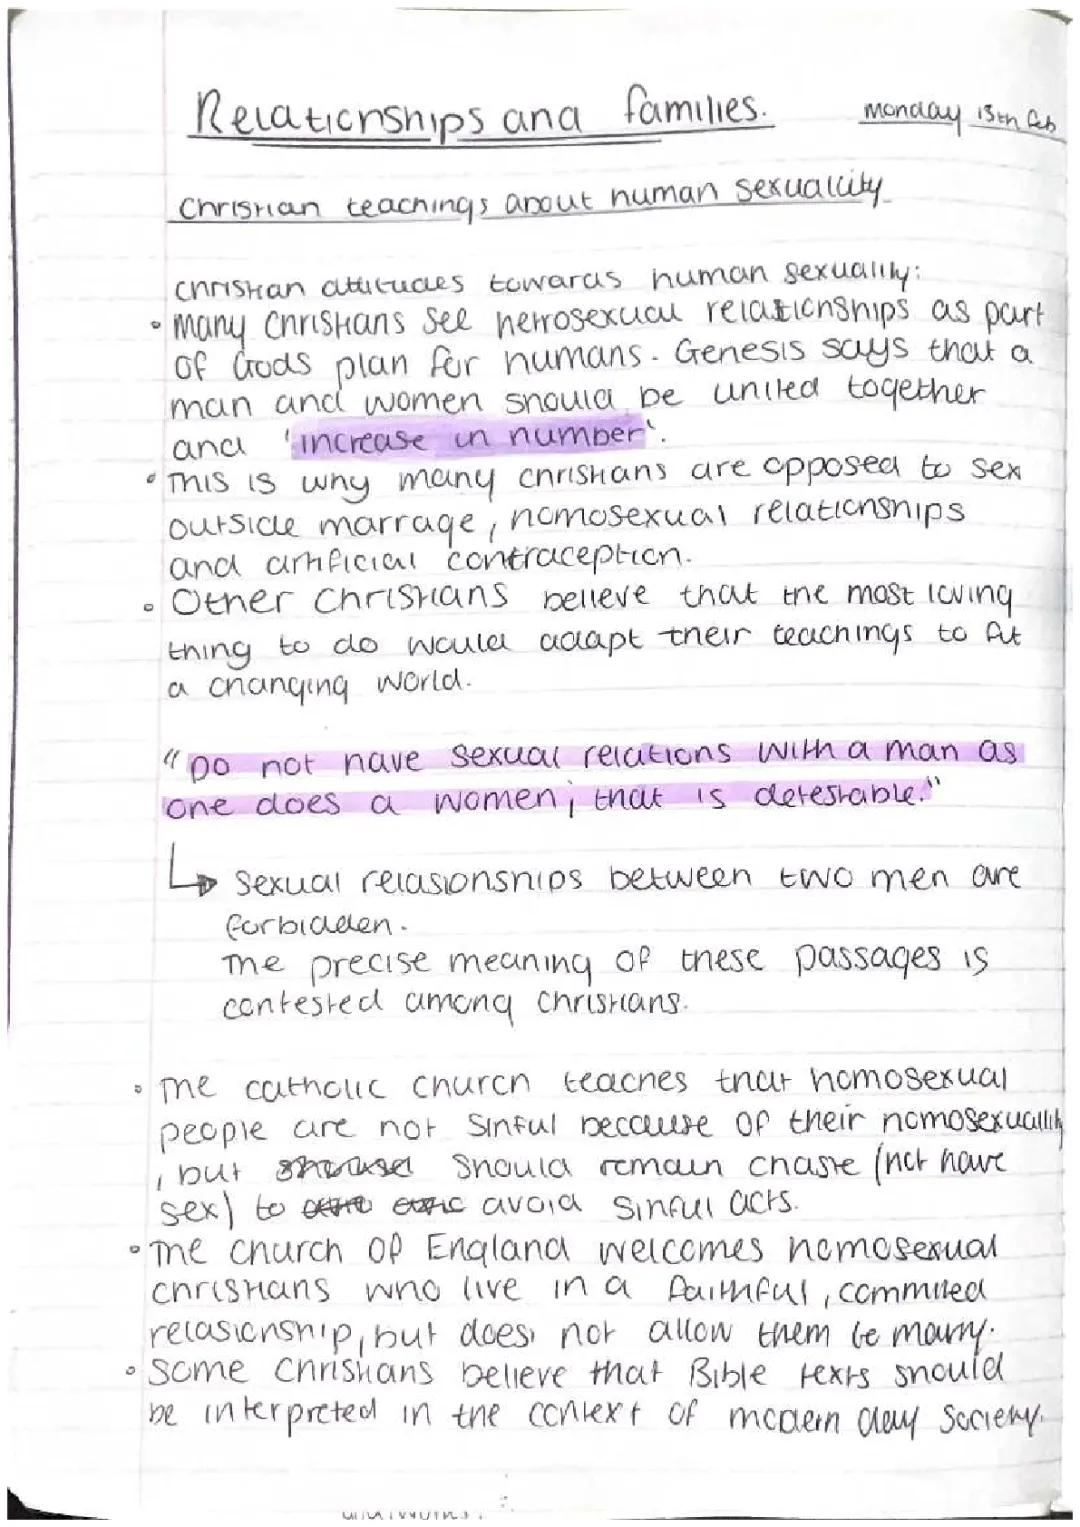 Relationships and families.
Monday 13th Feb
Christian teachings about human sexuality
Christian attitudes towards human sexuality:
• Many Christians see hetrosexual relationships as part
of Gods plan for humans. Genesis says that a
man and women should be united together
and 'increase in number'.
• This is why many christians are opposed to sex
outside marrage, homosexual relationships
and artificial contraception.
• Other Christians believe that the most loving
thing to do would adapt their teachings to fit
a changing world.
"Do not have sexual relations with a man as
one does a women; that is detestable."
↳ Sexual relasionships between two men are
forbidden.
The precise meaning of these passages is
contested among Christians.
• The catholic church teaches that homosexual
people are not sinful because of their homosexuality
, but should remain chaste (not have
sex) to avoid sinful acts.
• The church of England welcomes homosexual
christians who live in a faithful, commited
relasionship, but does not allow them to marry.
• Some Christians believe that Bible texts should
be interpreted in the context of modern day society.